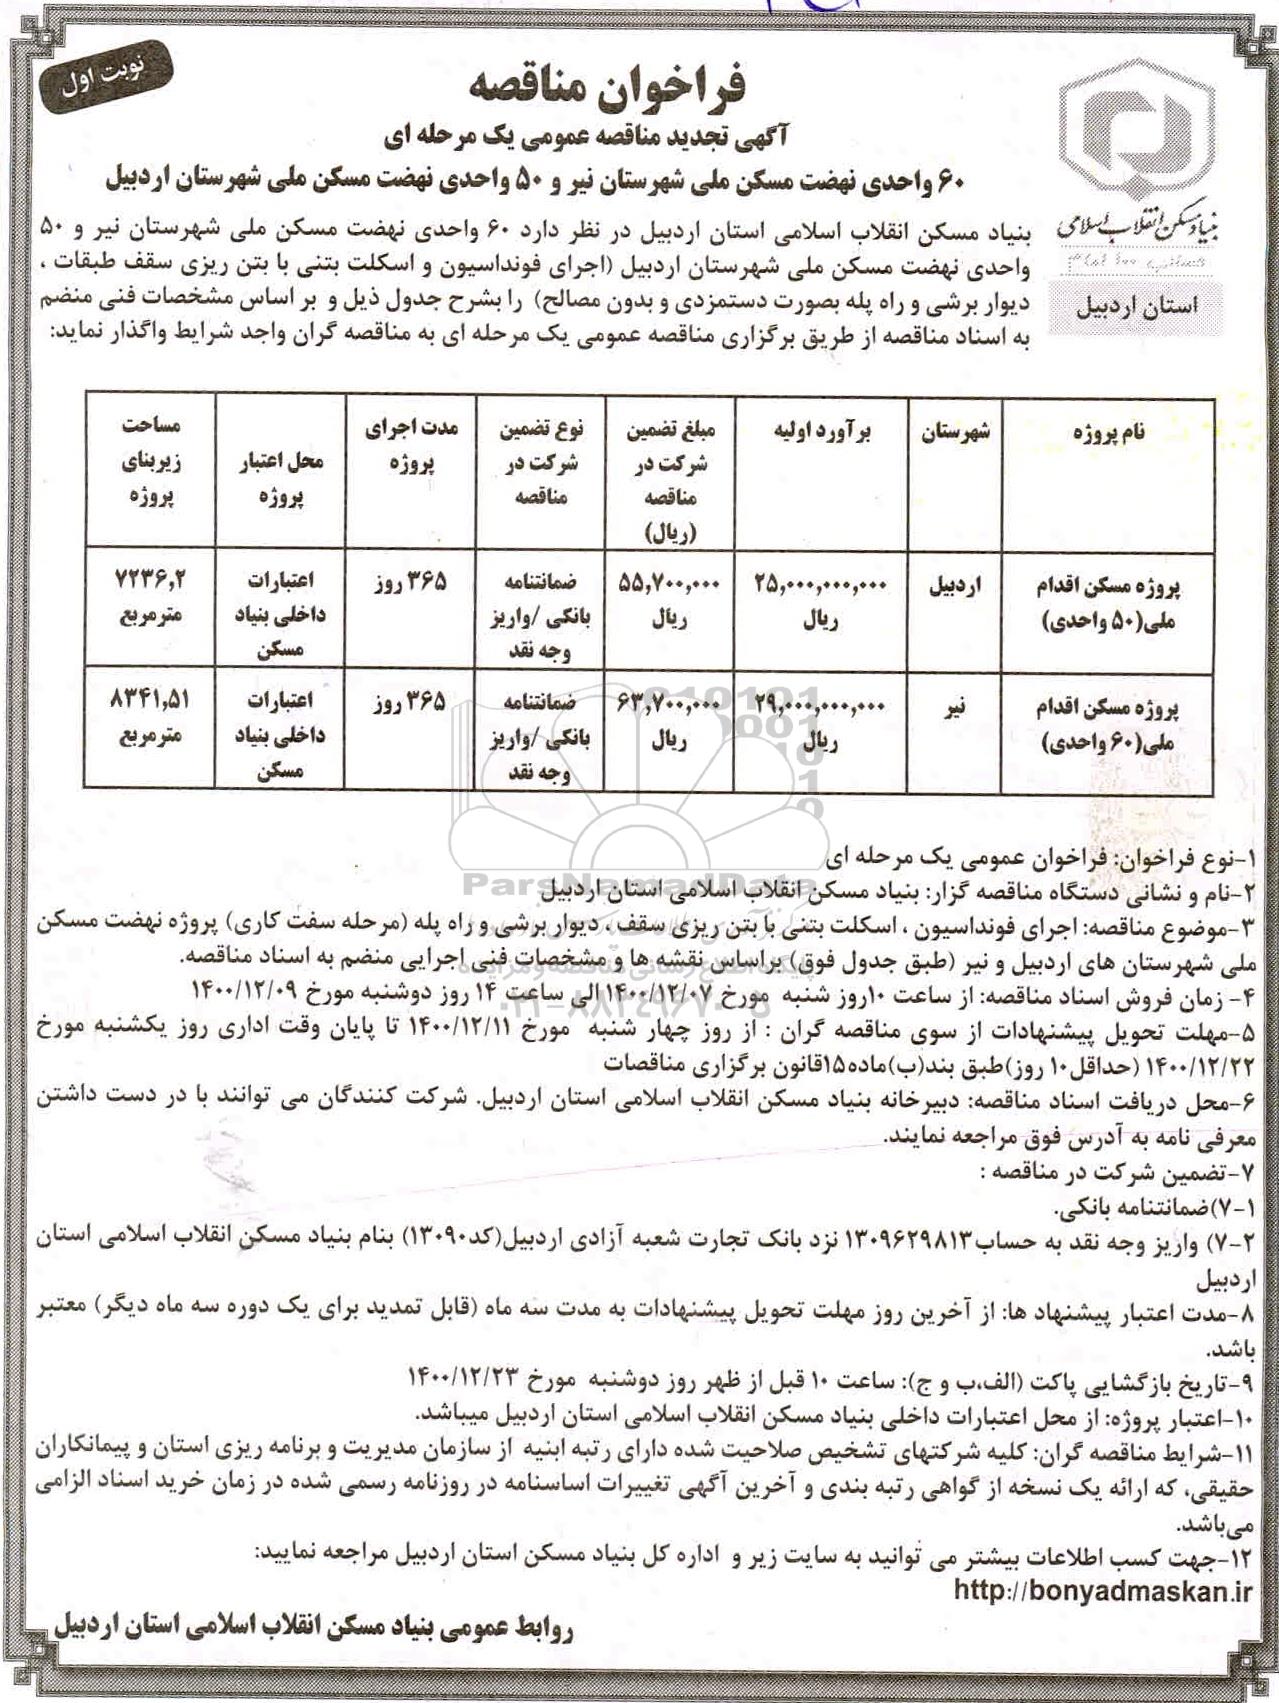 نوبت اول
فراخوان مناقصه
آگهی تجدید مناقصه عمومی یک مرحله ای
۶۰ واحدی نهضت مسکن ملی شهرستان نیر و ۵۰ واحدی نهضت مسکن ملی شهرستان اردبیل
بنیاد مسکن انقلاب اسلامی
استان اردبیل
بنیاد مسکن انقلاب اسلامی استان اردبیل در نظر دارد ۶۰ واحدی نهضت مسکن ملی شهرستان نیر و ۵۰
واحدی نهضت مسکن ملی شهرستان اردبیل (اجرای فونداسیون و اسکلت بتنی با بتن ریزی سقف طبقات ،
دیوار برشی و راه پله بصورت دستمزدی و بدون مصالح) را بشرح جدول ذیل و بر اساس مشخصات فنی منضم
به اسناد مناقصه از طریق برگزاری مناقصه عمومی یک مرحله ای به مناقصه گران واجد شرایط واگذار نماید:
نام پروژه شهرستان برآورد اولیه مبلغ تضمین شرکت در مناقصه (ریال) نوع تضمین شرکت در مناقصه مدت اجرای پروژه محل اعتبار پروژه مساحت زیربنای پروژه
پروژه مسکن اقدام ملی(۵۰ واحدی) اردبیل ۲۵,۰۰۰,۰۰۰,۰۰۰ ریال ۵۵,۷۰۰,۰۰۰ ریال ضمانتنامه بانکی /واریز وجه نقد ۳۶۵ روز اعتبارات داخلی بنیاد مسکن ۷۲۳۶,۲ مترمربع
پروژه مسکن اقدام ملی(۶۰ واحدی) نیر ۲۹,۰۰۰,۰۰۰,۰۰۰ ریال ۶۳,۷۰۰,۰۰۰ ریال ضمانتنامه بانکی /واریز وجه نقد ۳۶۵ روز اعتبارات داخلی بنیاد مسکن ۸۳۴۱,۵۱ مترمربع
۱-نوع فراخوان: فراخوان عمومی یک مرحله ای
ParsNamadData
۲-نام و نشانی دستگاه مناقصه گزار: بنیاد مسکن انقلاب اسلامی استان اردبیل
۳-موضوع مناقصه: اجرای فونداسیون ، اسکلت بتنی با بتن ریزی سقف ، دیوار برشی و راه پله (مرحله سفت کاری) پروژه نهضت مسکن
ملی شهرستان های اردبیل و نیر (طبق جدول فوق) براساس نقشه ها و مشخصات فنی اجرایی منضم به اسناد مناقصه.
پایگاه اطلاع رسانی مناقصه و مزایده
۴- زمان فروش اسناد مناقصه: از ساعت ۱۰روز شنبه مورخ ۱۴۰۰/۱۲/۰۷ الی ساعت ۱۴ روز دوشنبه مورخ ۱۴۰۰/۱۲/۰۹
۵-مهلت تحویل پیشنهادات از سوی مناقصه گران : از روز چهار شنبه مورخ ۱۴۰۰/۱۲/۱۱ تا پایان وقت اداری روز یکشنبه مورخ
۱۴۰۰/۱۲/۲۲ (حداقل۱۰ روز)طبق بند(ب)ماده۱۵قانون برگزاری مناقصات
۶-محل دریافت اسناد مناقصه: دبیرخانه بنیاد مسکن انقلاب اسلامی استان اردبیل. شرکت کنندگان می توانند با در دست داشتن
معرفی نامه به آدرس فوق مراجعه نمایند.
۷-تضمین شرکت در مناقصه :
۷-۱)ضمانتنامه بانکی.
۷-۲) واریز وجه نقد به حساب۱۳۰۹۶۲۹۸۱۳ نزد بانک تجارت شعبه آزادی اردبیل(کد۱۳۰۹۰) بنام بنیاد مسکن انقلاب اسلامی استان
اردبیل
۸-مدت اعتبار پیشنهاد ها: از آخرین روز مهلت تحویل پیشنهادات به مدت سه ماه (قابل تمدید برای یک دوره سه ماه دیگر) معتبر
باشد.
۹-تاریخ بازگشایی پاکت (الف،ب و ج): ساعت ۱۰ قبل از ظهر روز دوشنبه مورخ ۱۴۰۰/۱۲/۲۳
۱۰-اعتبار پروژه: از محل اعتبارات داخلی بنیاد مسکن انقلاب اسلامی استان اردبیل میباشد.
۱۱-شرایط مناقصه گران: کلیه شرکتهای تشخیص صلاحیت شده دارای رتبه ابنیه از سازمان مدیریت و برنامه ریزی استان و پیمانکاران
حقیقی، که ارائه یک نسخه از گواهی رتبه بندی و آخرین آگهی تغییرات اساسنامه در روزنامه رسمی شده در زمان خرید اسناد الزامی
می‌باشد.
۱۲-جهت کسب اطلاعات بیشتر می توانید به سایت زیر و اداره کل بنیاد مسکن استان اردبیل مراجعه نمایید:
http://bonyadmaskan.ir
روابط عمومی بنیاد مسکن انقلاب اسلامی استان اردبیل